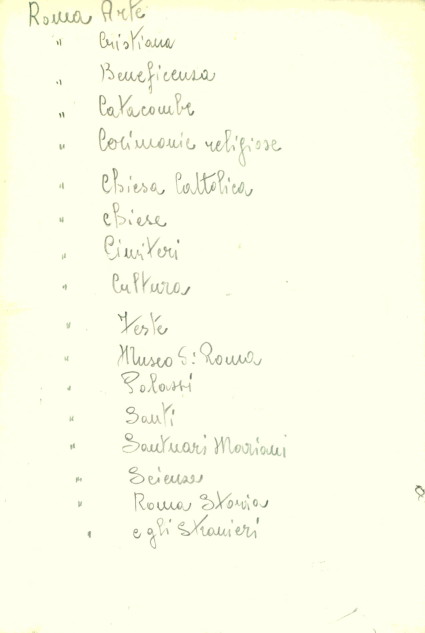 Roma Arte
" Cristiana
" Beneficenza
" Catacombe
" Cerimonie religiose
" Chiesa Cattolica
" chiese
" Cimiteri
" Cultura
" Feste
" Museo di Roma
" Palazzi
" Santi
" Santuari Mariani
" Scienze
" Roma Storia
" e gli Stranieri